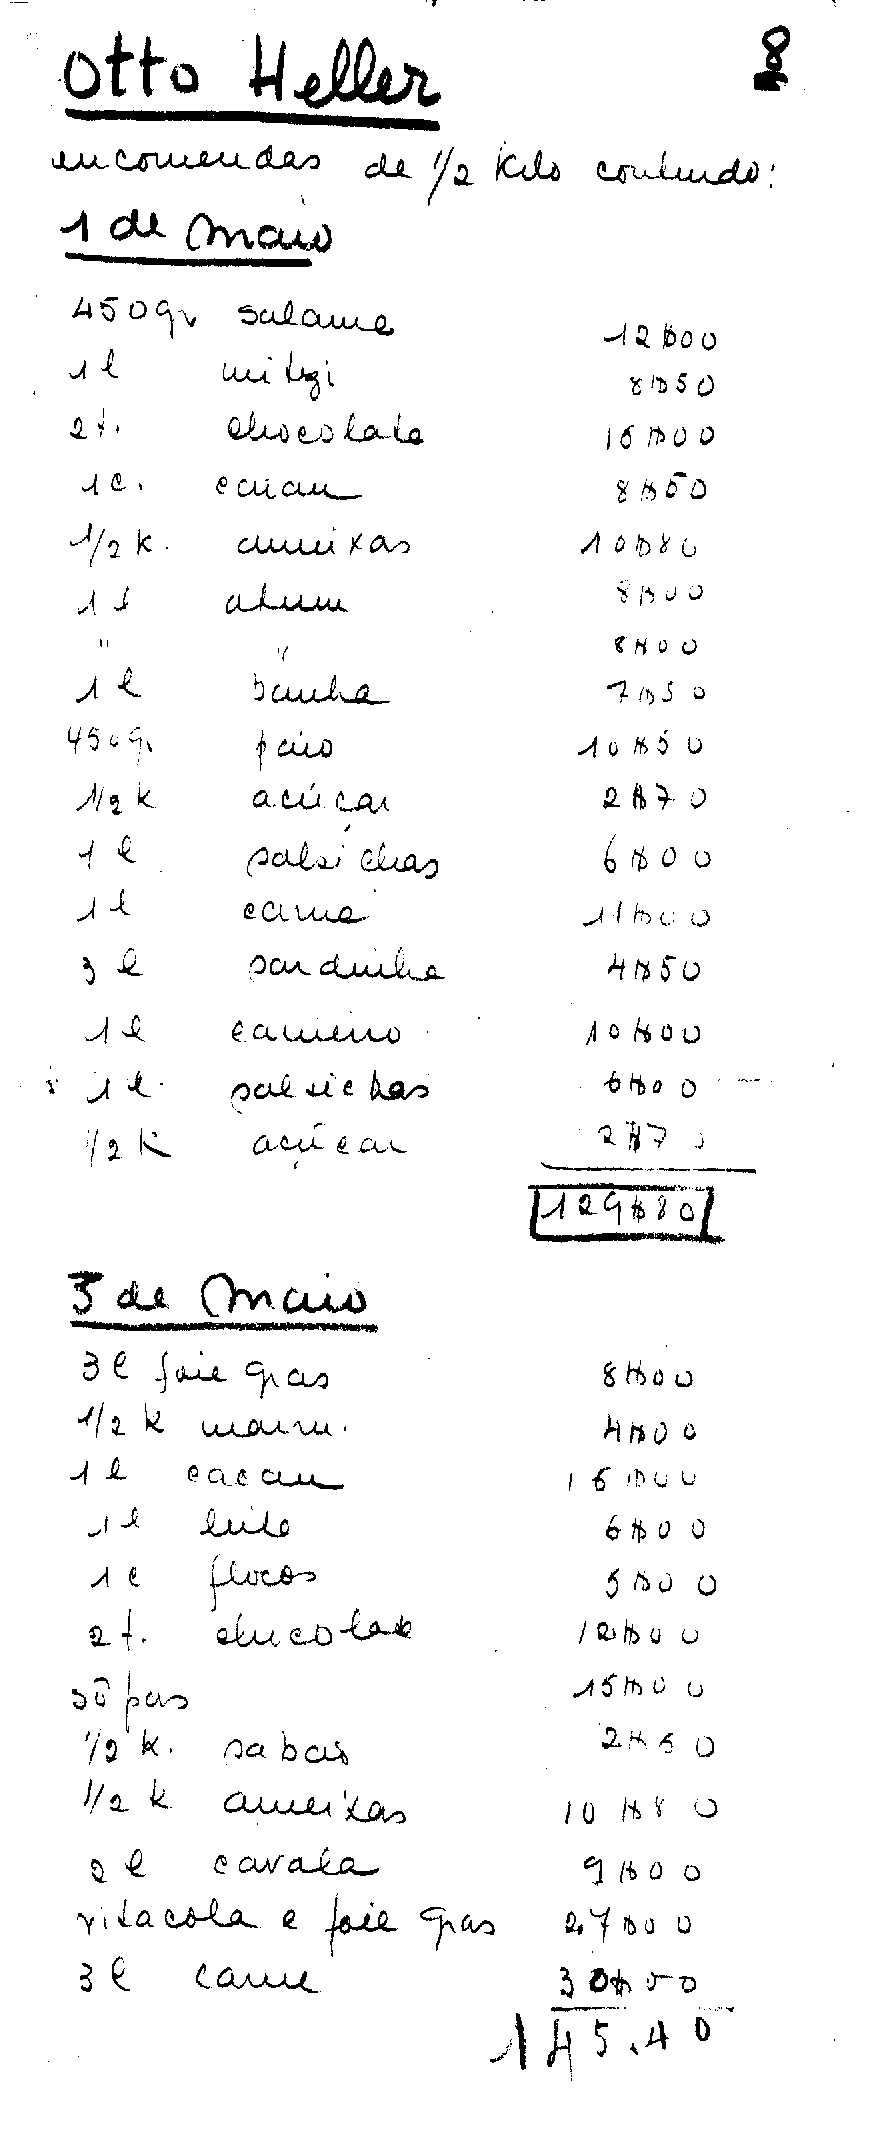 Otto Heller 8
encomendas de 1/2 Kilo contendo:
1 de Maio
450gr salame 12$00
1 l 8$50
2 t. chocolate 16$00
1 c. cacau 8$50
1/2 k. ameixas 10$80
1 l atum 8$00
" " 8$00
1 l banha 7$50
450g. paio 10$50
1/2 k açúcar 2$70
1 l salsichas 6$00
1 l carne 11$00
3 l sardinha 4$50
1 l 10$00
1 l. salsichas 6$00
1/2 K açúcar 2$70
129$80
3 de Maio
3 l foie gras 8$00
1/2 k marm. 4$00
1 l cacau 16$00
1 l leite 6$00
1 c flocos 5$00
2 t. chocolate 12$00
sopas 15$00
1/2 k. sabao 2$60
1/2 k ameixas 10$80
2 l cavala 9$00
vitacola e foie gras 27$00
3 l carne 30$00
145.40